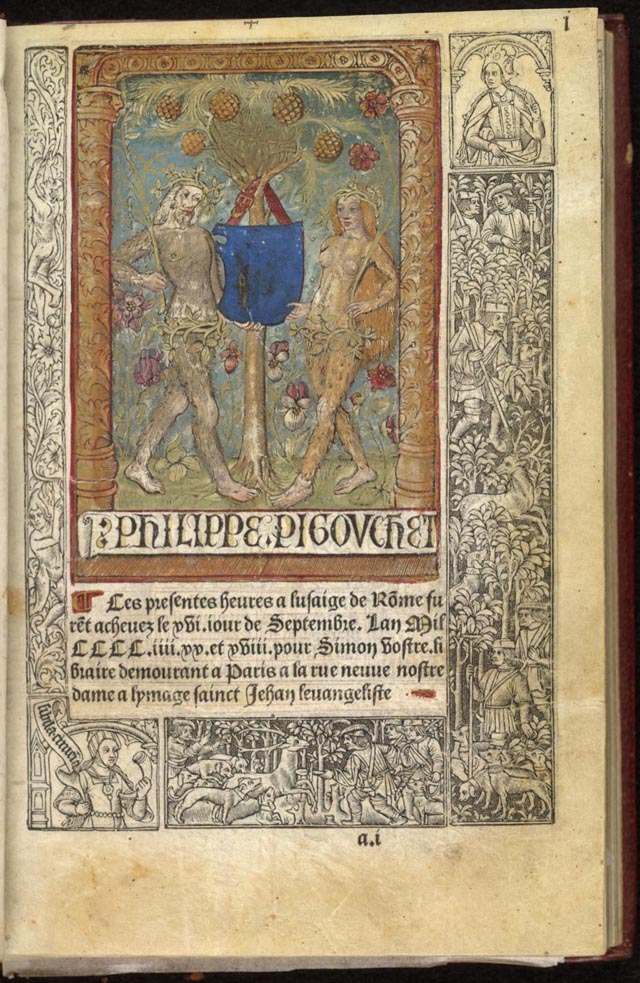 1
PHILIPPE.PIGOVCHET
¶ Ces presentes heures a lusaige de Rõme fu
rẽt acheuez le xvi.iour de Septembre. Lan Mil
CCCC.iiii.xx.et xviii.pour Simon Vostre.li
braire demourant a Paris a la rue neuue nostre
dame a lymage sainct Jehan leuangeliste
a.i